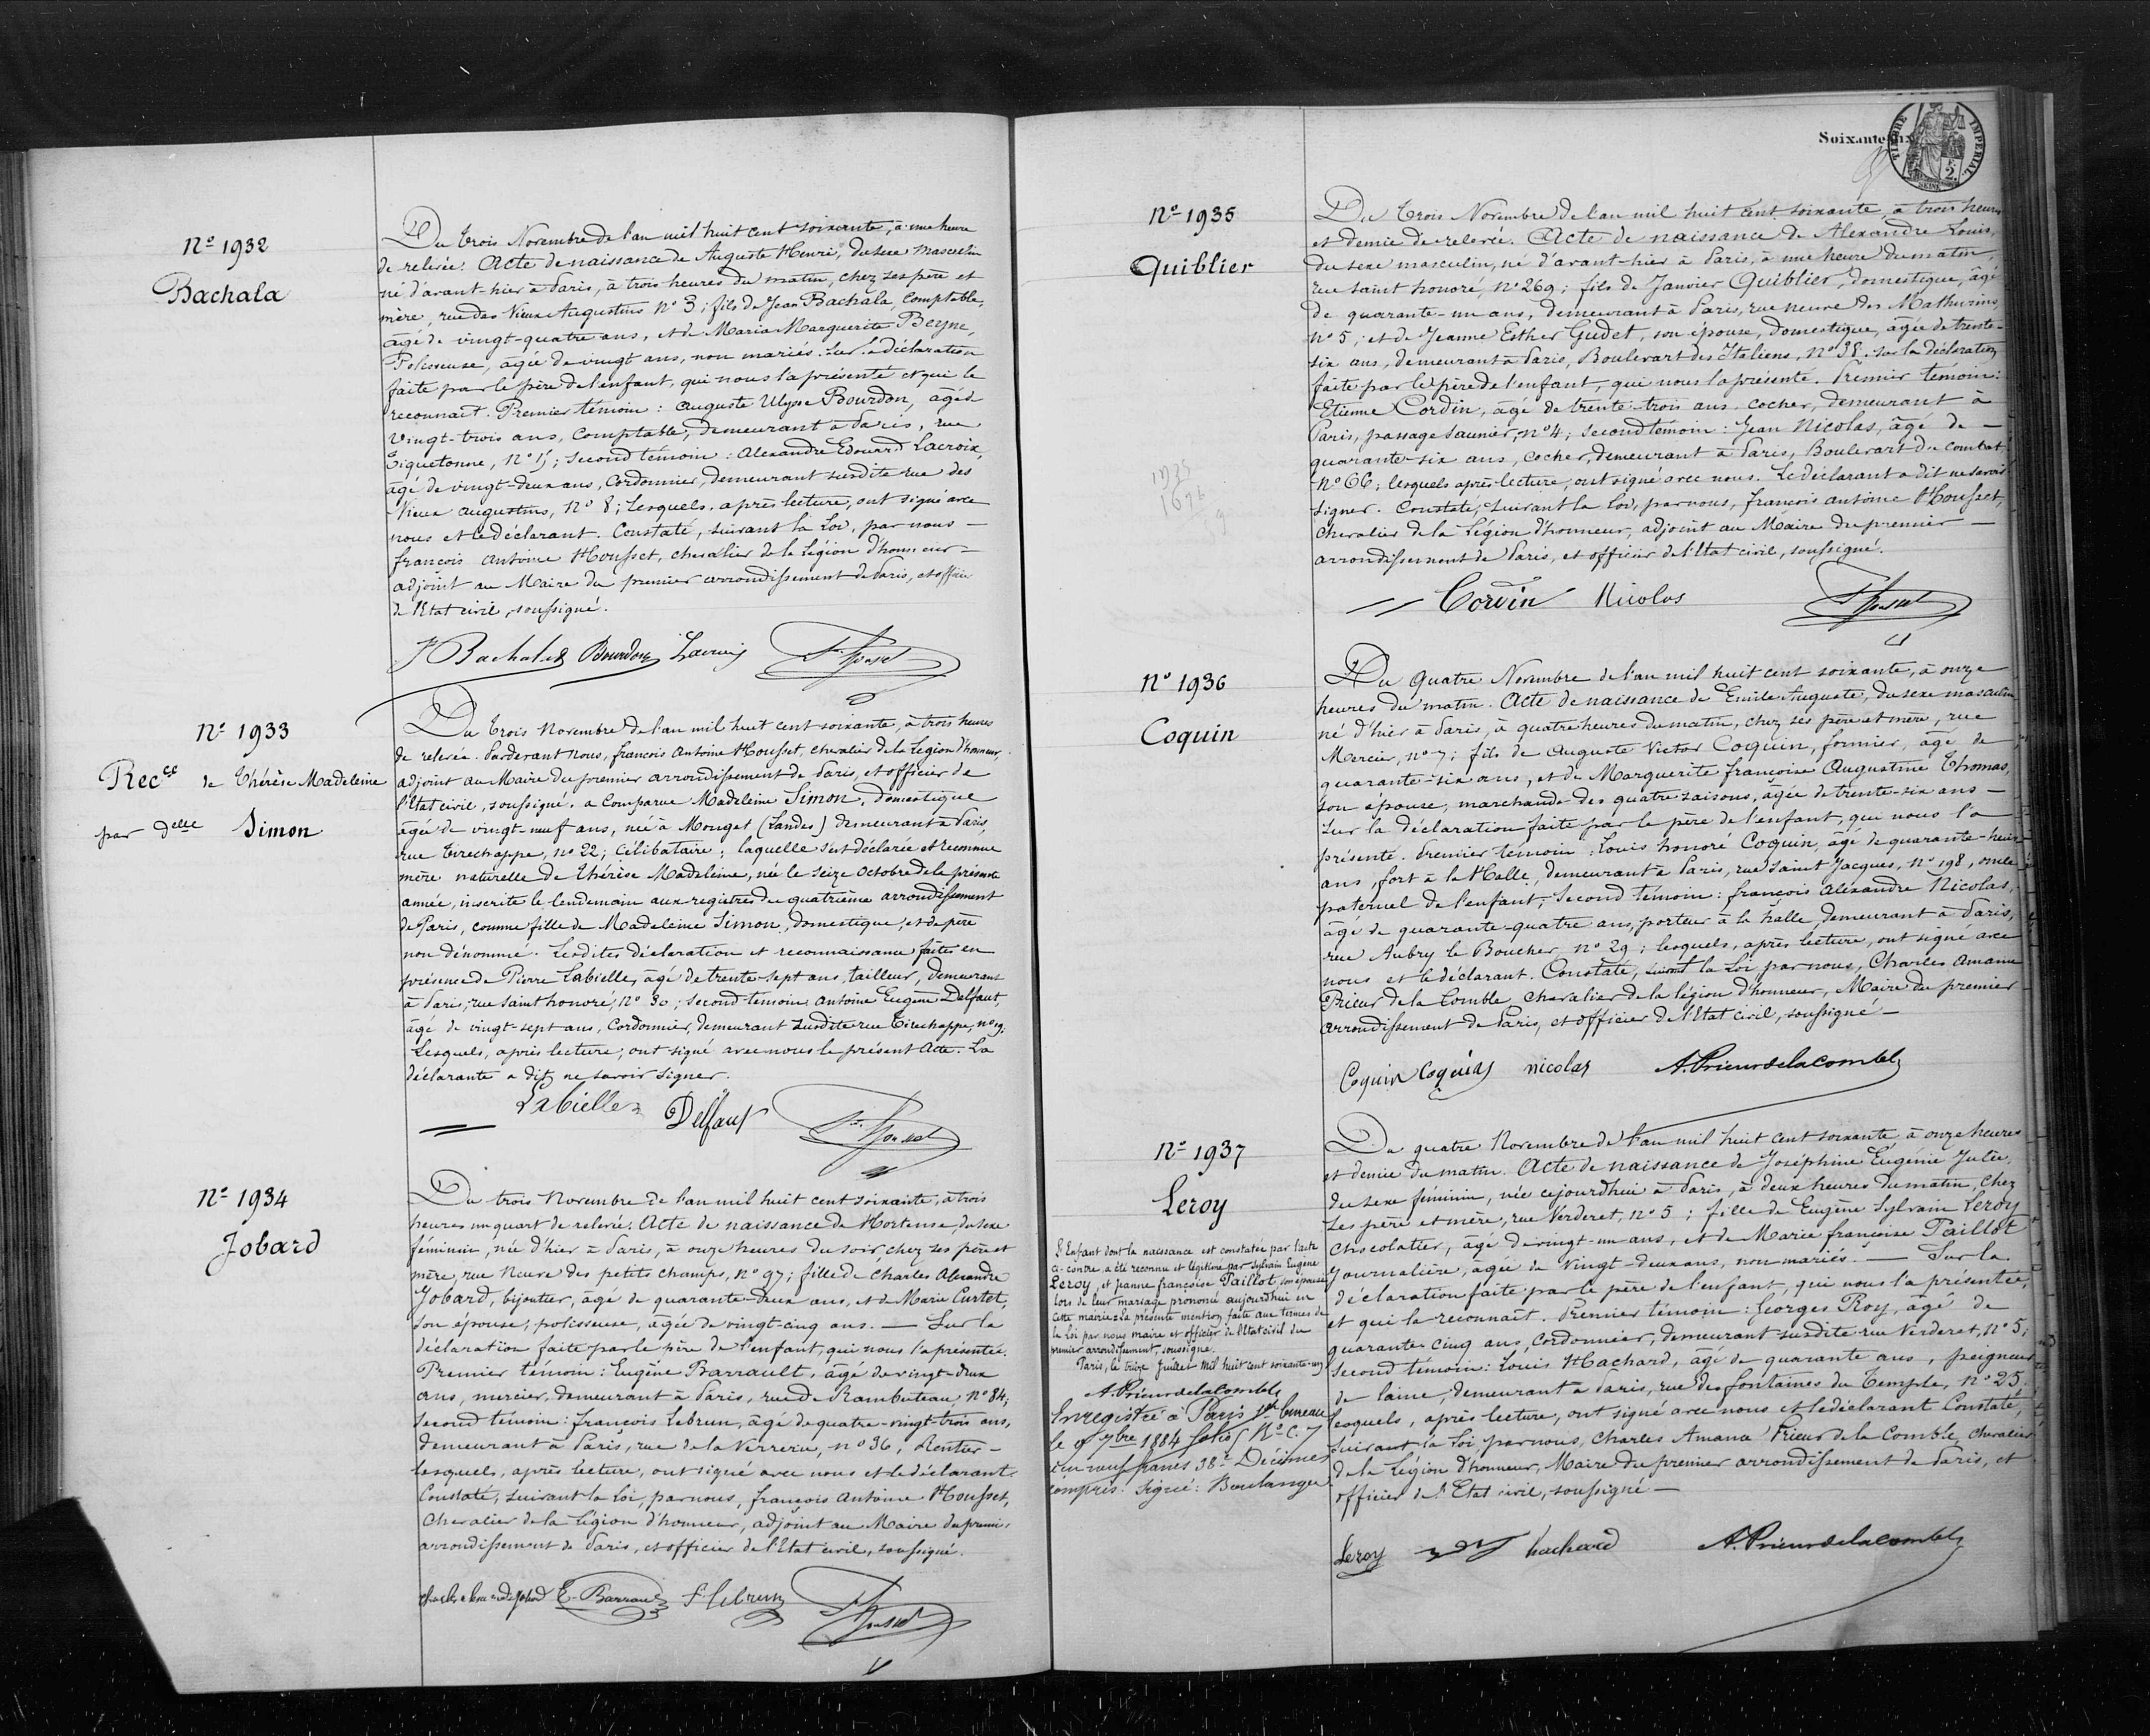 Nº 1932
Bachala
Du trois Novembre de l'an mil huit cent soixante, à une heure
de relevée. Acte de naissance de Auguste Henri, du sexe masculin
né d'avant-hier à Paris, à trois heures du matin, chez ses père et
mère, rue des Vieux Augustins nº 3; fils de Jean Bachala, comptable,
âgé de vingt-quatre ans, et de Maria Marguerite Beyne,
Polisseuse, âgée de vingt ans, non mariés. Sur la déclaration
faite par le père de l'enfant, qui nous l'a présenté et qui le
reconnait. Premier témoin: Auguste Ulysse Bourdon, âgé de
vingt-trois ans, comptable, demeurant à Paris, rue
Tiquetonne, nº 15; second témoin: Alexandre Edouard Lacroix,
âgé de vingt-deux ans, Cordonnier, demeurant susdite rue des
Vieux augustins, nº 8; Lesquels, après lecture, ont signé avec
nous et le déclarant. Constaté, suivant la Loi, par nous —
françois Antoine Housset, chevalier de la Légion d'honneur —
adjoint au Maire du premier arrondissement de Paris, et officier
de l'Etat civil, soussigné.
J Bachala Bourdon Lacroix
Nº 1933
Recce de Thérèse Madeleine
par delle Simon
Du trois Novembre de l'an mil huit cent soixante, à trois heures
de relevée. Pardevant Nous, françois Antoine Housset, chevalier de la Légion d'honneur,
adjoint au Maire du premier arrondissement de Paris, et officier de
l'Etat civil, soussigné, a Comparue Madeleine Simon, domestique
âgée de vingt-neuf ans, née à Mouget (Landes) demeurant à Paris,
rue Tirechappe, nº 22; célibataire; laquelle s'est déclarée et reconnue
mère naturelle de Thérèse Madeleine, née le Seize Octobre de la présente
année, inscrite le lendemain aux registres du quatrième arrondissement
de Paris, comme fille de Madeleine Simon, domestique, et de père
non dénommé. Lesdites déclaration et reconnaissance faites en
présence de Pierre Labielle, âgé de trente-sept ans, tailleur, demeurant
à Paris, rue saint honoré, nº 30; second témoin Antoine Eugène Delfaut,
âgé de vingt-sept ans, Cordonnier, demeurant susdite rue Tirechappe, nº 19.
Lesquels, après lecture, ont signé avec nous le présent Acte. La
déclarante a dit ne savoir signer.
Labielle Delfaut
Nº 1934
Jobard
Du trois Novembre de l'an mil huit cent soixante, à trois
heures un quart de relevée, Acte de naissance de Hortense, du sexe
féminin, née d'hier à Paris, à onze heures du soir, chez ses père et
mère, rue Neuve des petits champs, nº 97; fille de Charles Alexandre
Jobard, bijoutier, âgé de quarante-deux ans, et de Marie Curtot,
son épouse, polisseuse, âgée de vingt-cinq ans. — Sur la
déclaration faite par le père de l'enfant, qui nous l'a présentée.
Premier témoin: Eugène Barrault, âgé de vingt-deux
ans, mercier, demeurant à Paris, rue de Rambuteau, nº 84;
Second témoin: françois Lebrun, âgé de quatre-vingt-trois ans,
demeurant à Paris, rue de la Verrerie, nº 36, Rentier —
lesquels, après lecture, ont signé avec nous et le déclarant
Constaté, suivant la Loi, par nous, françois Antoine Housset,
Chevalier de la Légion d'honneur, adjoint au Maire du premier
arrondissement de Paris, et officier de l'Etat civil, soussigné.
E. Barrault f. lebrun
Soixante-dix
TIMBRE IMPERIAL
2
SEINE
Nº 1935
Quiblier
Du Trois Novembre de l'an mil huit cent soixante, à trois heures
et demie de relevée. Acte de naissance de Alexandre Louis,
du sexe masculin, né d'avant-hier à Paris, à une heure du matin,
rue saint honoré, Nº 269; fils de Janvier Quiblier, domestique, âgé
de quarante-un ans, demeurant à Paris, rue neuve des Mathurins,
nº 5, et de Jeanne Esther Gudet, son épouse, domestique, âgée de trente-
six ans, demeurant à Paris, Boulevart des Italiens, Nº 38. Sur la déclaration
faite par le père de l'enfant, qui nous l'a présenté. Premier témoin:
Etienne Cordin, âgé de trente-trois ans, cocher, demeurant à
Paris, passage Saunier, nº 4; second témoin: Jean Nicolas, âgé de —
quarante-six ans, cocher, demeurant à Paris, Boulevart du Combat
Nº 66; lesquels après lecture, ont signé avec nous. Le déclarant a dit ne savoir
signer. Constaté, suivant la Loi, par nous, françois antoine Housset,
chevalier de la Légion d'honneur, adjoint au Maire du premier —
arrondissement de Paris, et officier de l'Etat civil, soussigné.
Cordin Nicolas
Nº 1936
Coquin
Du Quatre Novembre de l'an mil huit cent soixante, à onze
heures du matin. Acte de naissance de Emile Auguste, du sexe masculin
né d'hier à Paris, à quatre heures du matin, chez ses père et mère, rue
Mercier, nº 7; fils de Auguste Victor Coquin, formier, âgé de
quarante-six ans, et de Marguerite françoise Augustine Thomas,
son épouse, marchande des quatre saisons, âgée de trente-six ans —
Sur la déclaration faite par le père de l'enfant, qui nous l'a
présenté. Premier témoin: Louis honoré Coquin, âgé de quarante-huit
ans, fort à la Halle, demeurant à Paris, rue Saint Jacques, nº 198, oncle
paternel de l'enfant; Second témoin: françois alexandre Nicolas,
âgé de quarante-quatre ans, porteur à la halle, demeurant à Paris,
rue Aubry le Boucher, nº 29; lesquels, après lecture, ont signé avec
nous et le déclarant. Constaté, suivant la Loi par nous, Charles Amance
Prieur de la Comble, chevalier de la légion d'honneur, Maire du premier
arrondissement de Paris, et officier de l'Etat civil, soussigné —
Coquin Coquin nicolas A. Prieurdelacomble
Nº 1937
Leroy
L'Enfant dont la naissance est constatée par l'acte
ci-contre a été reconnu et légitimé par Sylvain Eugène
Leroy, et jeanne françoise Paillot, son épouse,
lors de leur mariage prononcé aujourd'hui en
cette mairie; la présente mention faite aux termes de
la Loi par nous maire et officier de l'Etat civil du
premier arrondissement, soussigné.
Paris, le treize Juillet mil huit cent soixante-un
A. Prieurdelacomble
Enregistré à Paris 1er bureau
le 9 7bre 1884 folio Rº C. 7
neuf francs 38c Décimes
compris. Signé: Boulanger
Du quatre Novembre de l'an mil huit cent soixante à onze heures
et demie du matin. Acte de naissance de Joséphine Eugénie Julie,
du sexe féminin, née cejourdhui à Paris, à deux heures du matin, chez
ses père et mère, rue Verderet, nº 5; fille de Eugène Sylvain Leroy
chocolatier, âgé de vingt-un ans, et de Marie françoise Paillot
Journalière, âgée de vingt-deux ans, non mariés. — Sur la
déclaration faite par le père de l'enfant, qui nous l'a présentée,
et qui la reconnaît. Premier témoin: Georges Roy, âgé de
quarante cinq ans, Cordonnier, demeurant susdite rue Verderet, nº 5;
Second témoin: Louis Hachard, âgé de quarante ans, peigneur
de laine, demeurant à Paris, rue des fontaines du Temple, nº 25.
lesquels, après lecture, ont signé avec nous et le déclarant. Constaté,
suivant la Loi, par nous, Charles Amance Prieur de la Comble, Chevalier
de la Légion d'honneur, Maire du premier arrondissement de Paris, et
officier de l'Etat civil, soussigné —
Leroy hachard A. Prieurdelacomble